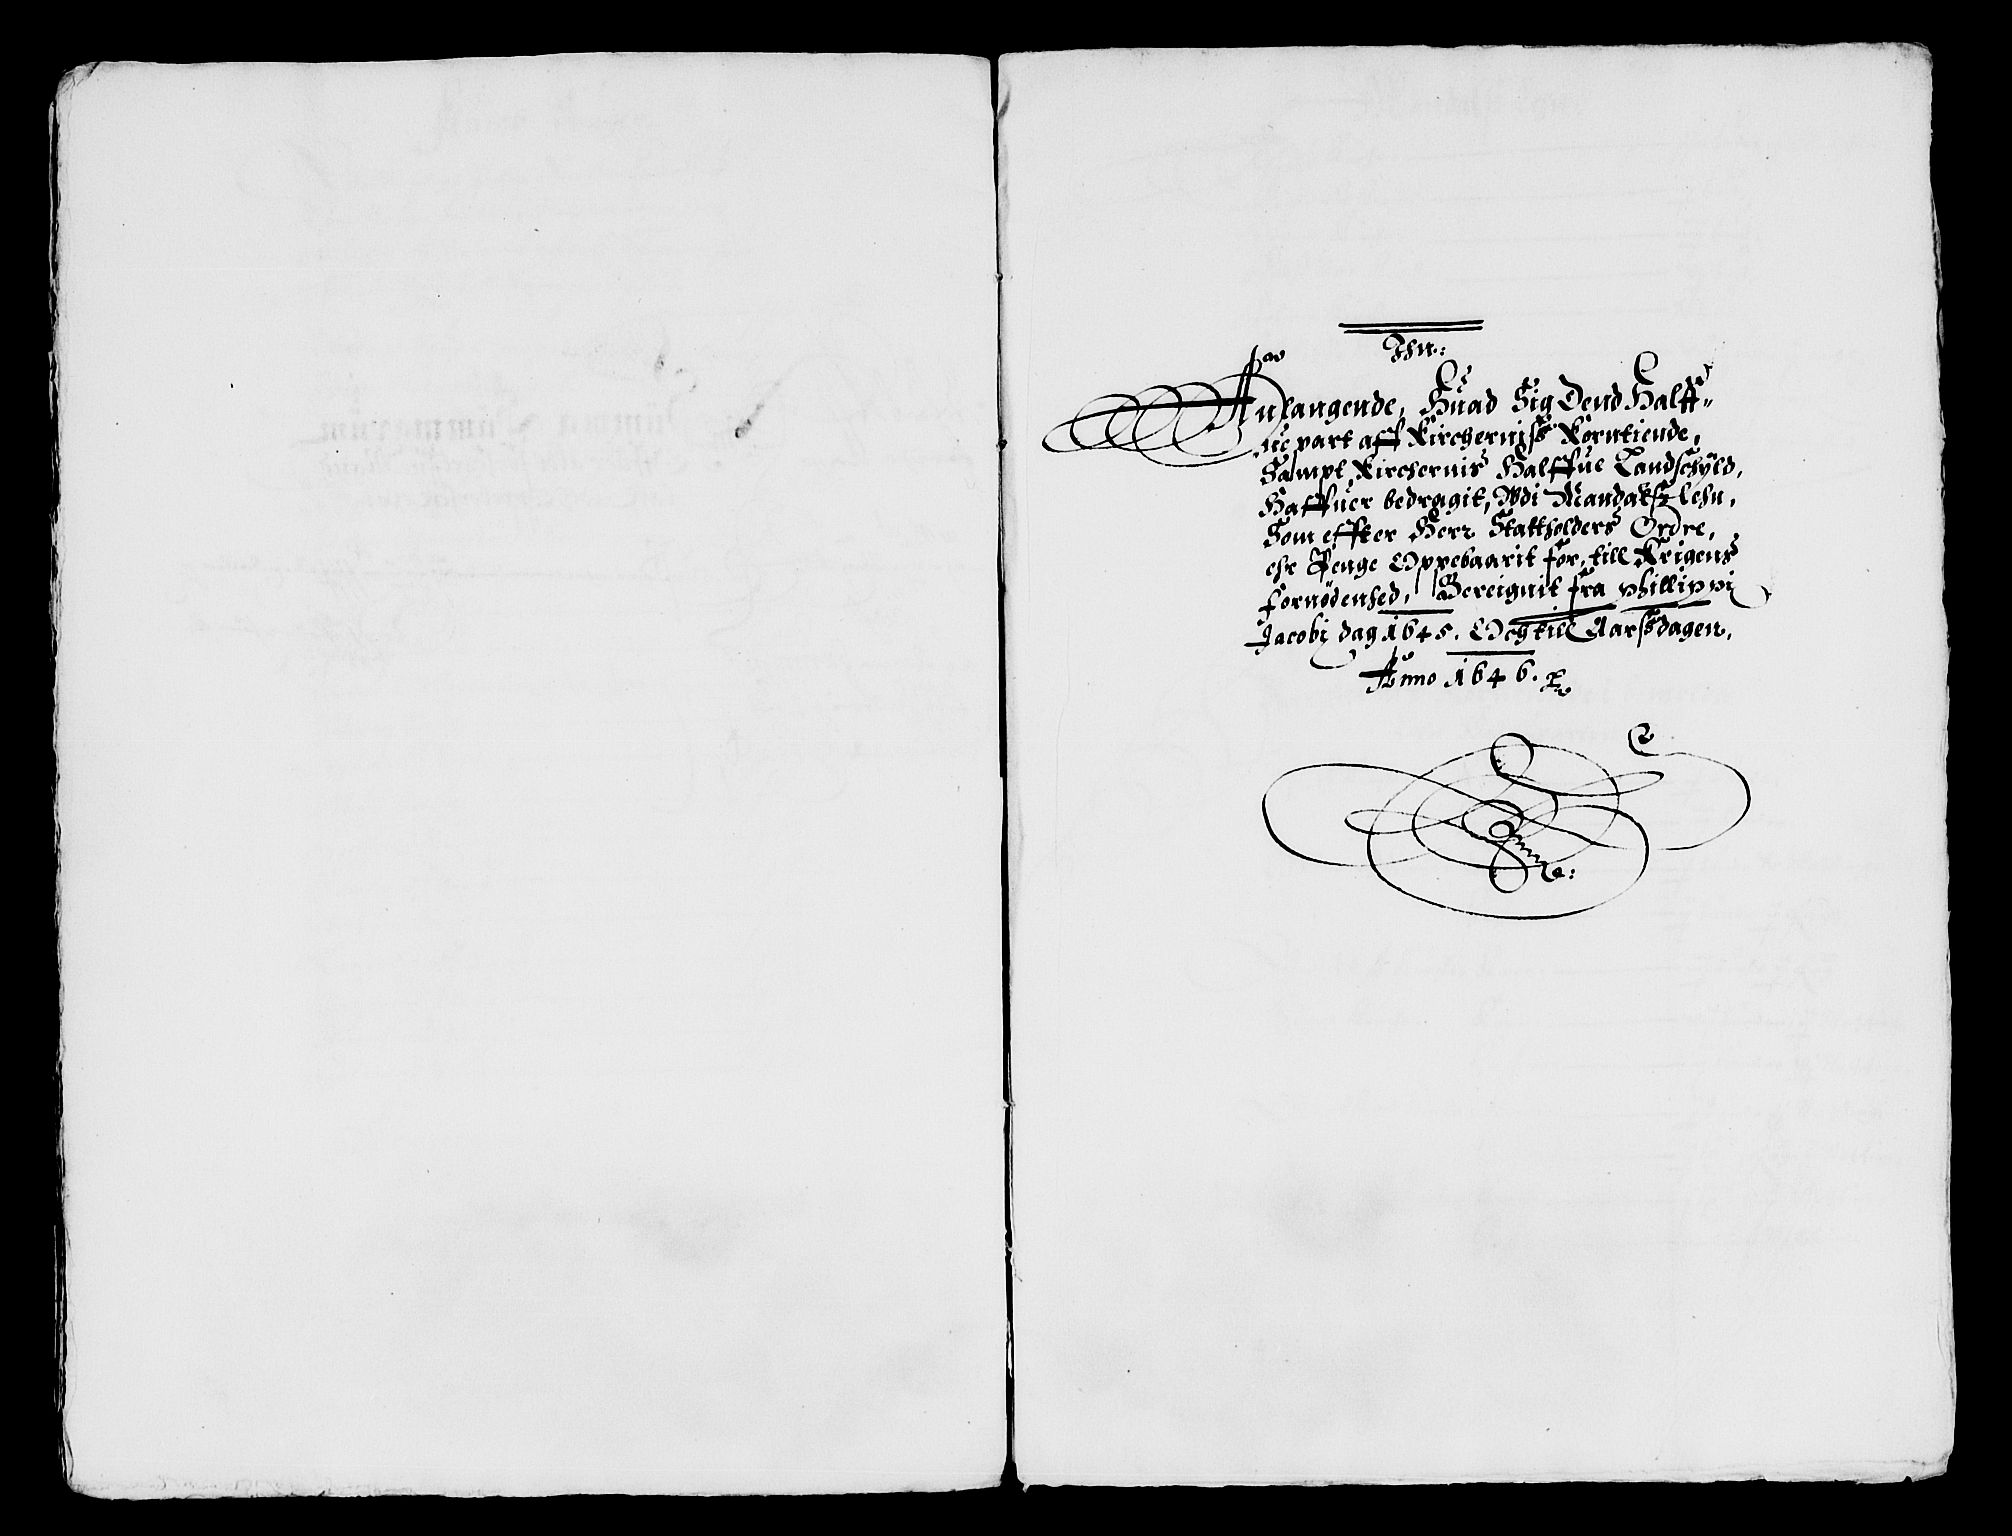 Jhu:
Anlangende, Huad Sig Dend Halff-
ue part aff Kirchernisß Korntiende,
Sampt, Kirchernis Halffue Landschÿld,
Haffuer bedragit, Wdi Mandals Lehn,
Som effter Herr Stattholders Ordre,
ehr Penge Oppebaarit for, till Krigens
fornødenhed, Bereignit fra Phillippi
Jacobj dag 1645. Och till Aarsdagen,
Anno 1646.
Summa Summarum